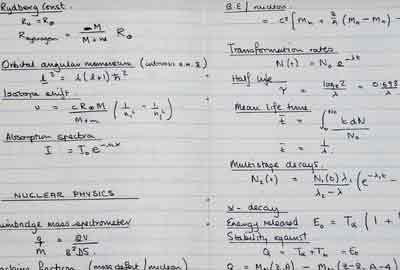 Rydberg Const.
R∞ = R∞
R Hydrogen = M / M + m R∞
Orbital angular momentum (intrinsic a.m. s)
l² = l(l+1) ħ²
Isotope shift.
ν = c R∞ M / M + m ( 1/n² - 1/n² )
Absorption spectra
I = I₀ e^-nx
NUCLEAR PHYSICS
Bainbridge mass spectrometer
q / M = 2V / B²DS
fraction (mass defect / nucleon)
B.E / nucleon
= c² [ Mn + Z/A (MH - Mn) -
Transformation rates
N(t) = N₀ e^-λt
Half life
τ = loge 2 / λ = 0.693 / λ
Mean life time
t̄ = ∫ t dN / N₀
t̄ = 1/λ
Multistage decays.
N₂(t) = N₁(0) λ₁ / λ₂ - λ ( e^-λ₁t -
α - decay
Energy released E₀ = Tα ( 1 +
Stability against
Q = Tα + Tb = E₀
Q = M (Z,A) - M (Z-2, A-4)